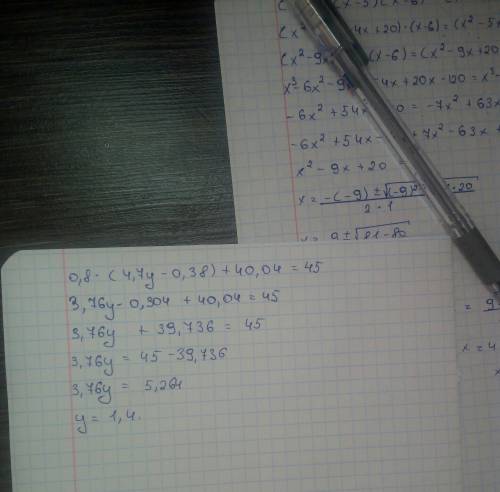 (x-5)(x-6)
(x² 4x+20)·(x-6)=(x²-5x
(x²-9x (x-6)=(x²-9x+20
x³-6x²-9x 4x+20x-120=x³-
-6x²+54x 0=-7x²+63x
-6x²+54x- +7x²-63x
x²-9x+20
x= -(-9)±√(-9)² ·20
2·1
9±√81-80
= 9
x=4
x
0,8·(4,7y-0,38)+40,04=45
3,76y-0,304+40,04=45
3,76y +39,736=45
3,76y=45-39,736
3,76y= 5,264
y=1,4.